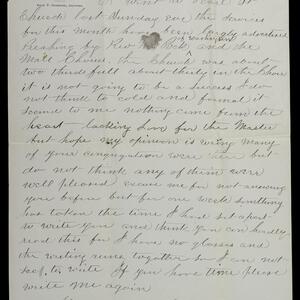 I went to
Church last Sunday eve the services
for this month have been largely advertised
Preaching by Rev and the
Male Chorus. The Church was about
two thirds full about thirty in the Choir
it is not going to be a success I do
not think to cold and formal it
seemed to me nothing came from the
heart - lacking Love for the Master
but hope my opinion is wrong many
of your congregation were here but
do not think any of them were
well pleased excuse me for not answering
you before but for one week something
has taken the time I have set apart
to write you and think you can hardly
read this for I have no glasses and
the writing runs together so I can not
see to write If you have time please
write me again